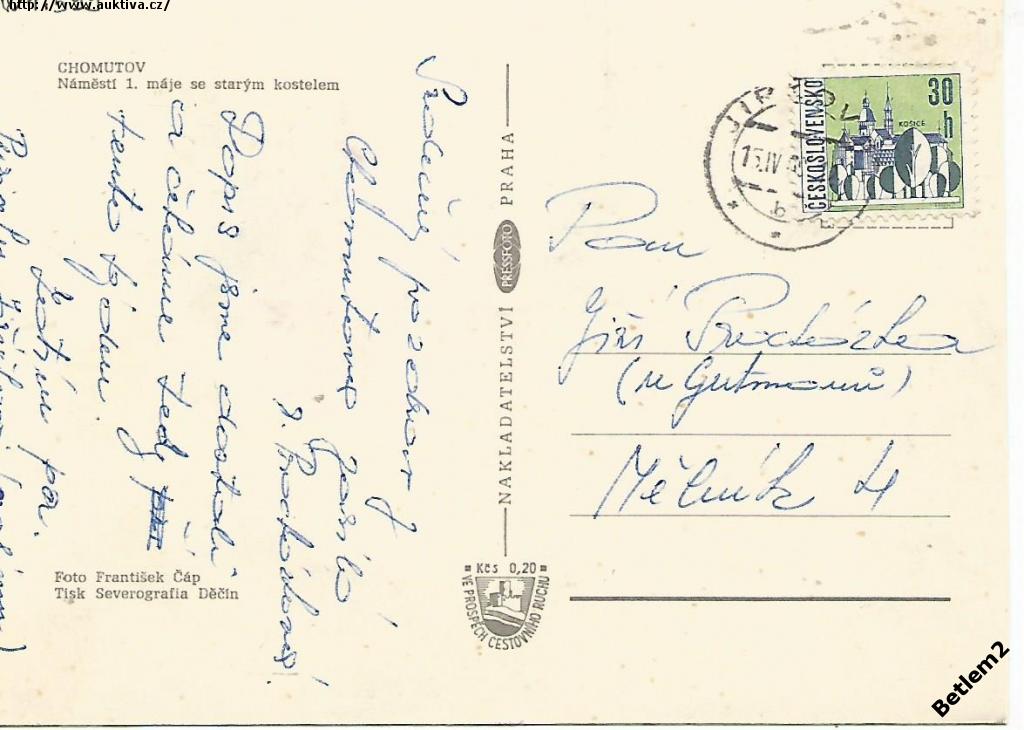 http://www.auktiva.cz/
CHOMUTOV
Náměstí 1. máje se starým kostelem
Srdečný pozdrav z
Chomutova posílá
Procházková!
Dopis jsme dostali
a čekáme tedy
tento týden.
Foto František Čáp
Tisk Severografia Děčín
NAKLADATELSTVÍ PRESSFOTO PRAHA
Kčs 0,20
VE PROSPĚCH CESTOVNÍHO RUCHU
ČESKOSLOVENSKO
30
h
KOŠICE
JIRKOV
Pan
Jiří Procházka
(u Gutmanů)
Mělník 4
Betlem2